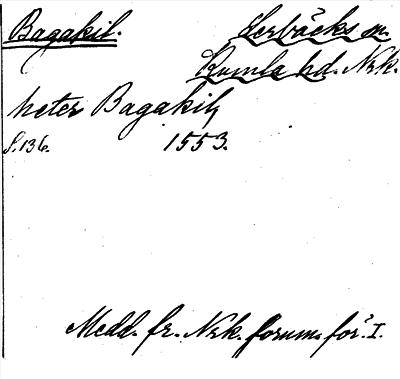 Bagakil. Lerbäcks sn.
Kumla hd. Nrk.
heter Bagakil,
S. 136. 1553.
Medd. fr. Nrk. fornm. för. I.